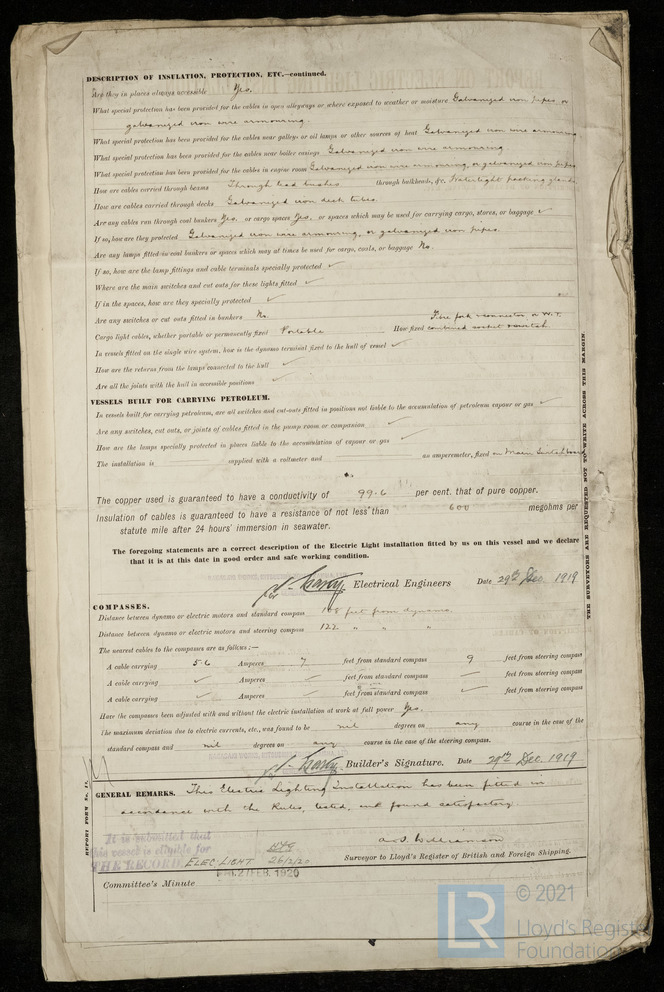 DESCRIPTION OF INSULATION, PROTECTION, ETC.—continued.
Are they in places always accessible Yes.
What special protection has been provided for the cables in open alleyways or where exposed to weather or moisture Galvanized iron pipes or
galvanized iron wire armouring.
What special protection has been provided for the cables near galleys or oil lamps or other sources of heat Galvanized iron wire armouring
What special protection has been provided for the cables near boiler casings Galvanized iron wire armouring
What special protection has been provided for the cables in engine room Galvanized iron wire armouring, or galvanized iron pipes
How are cables carried through beams Through lead bushes through bulkheads, &c. Watertight packing glands
How are cables carried through decks Galvanized iron deck tubes.
Are any cables run through coal bunkers Yes. or cargo spaces Yes. or spaces which may be used for carrying cargo, stores, or baggage ✓
If so, how are they protected Galvanized iron wire armouring, or galvanized iron pipes.
Are any lamps fitted in coal bunkers or spaces which may at times be used for cargo, coals, or baggage No.
If so, how are the lamp fittings and cable terminals specially protected ✓
Where are the main switches and cut outs for these lights fitted ✓
If in the spaces, how are they specially protected ✓
Are any switches or cut outs fitted in bunkers No. connector or W.T.
Cargo light cables, whether portable or permanently fixed Portable How fixed combined socket
In vessels fitted on the single wire system, how is the dynamo terminal fixed to the hull of vessel ✓
How are the returns from the lamps connected to the hull ✓
Are all the joints with the hull in accessible positions ✓
VESSELS BUILT FOR CARRYING PETROLEUM.
In vessels built for carrying petroleum, are all switches and cut-outs fitted in positions not liable to the accumulation of petroleum vapour or gas ✓
Are any switches, cut outs, or joints of cables fitted in the pump room or companion ✓
How are the lamps specially protected in places liable to the accumulation of vapour or gas ✓
The installation is supplied with a voltmeter and an amperemeter, fixed on Main Switchboard
The copper used is guaranteed to have a conductivity of 99.6 per cent. that of pure copper.
Insulation of cables is guaranteed to have a resistance of not less than 600 megohms per
statute mile after 24 hours' immersion in seawater.
The foregoing statements are a correct description of the Electric Light installation fitted by us on this vessel and we declare
that it is at this date in good order and safe working condition.
Electrical Engineers Date 29th Dec. 1919
COMPASSES.
Distance between dynamo or electric motors and standard compass 108 feet from dynamo.
Distance between dynamo or electric motors and steering compass 122 " " "
The nearest cables to the compasses are as follows:—
A cable carrying 5.6 Amperes 7 feet from standard compass 9 feet from steering compass
A cable carrying ✓ Amperes — feet from standard compass — feet from steering compass
A cable carrying ✓ Amperes — feet from standard compass ✓ feet from steering compass
Have the compasses been adjusted with and without the electric installation at work at full power Yes.
The maximum deviation due to electric currents, etc., was found to be nil degrees on any course in the case of the
standard compass and nil degrees on any course in the case of the steering compass.
Builder's Signature. Date 29th Dec. 1919
GENERAL REMARKS. This Electric Lighting Installation has been fitted in
accordance with the Rules, tested, and found satisfactory.
It is submitted that
this vessel is eligible for
THE RECORD. ELEC. LIGHT 26/2/20
A. J. Williamson
Surveyor to Lloyd's Register of British and Foreign Shipping.
27 FEB. 1920
Committee's Minute
REPORT FORM No. 13.
THE SURVEYORS ARE REQUESTED NOT TO WRITE ACROSS THIS MARGIN
LR
© 2021
Lloyd's Regist
Foundation